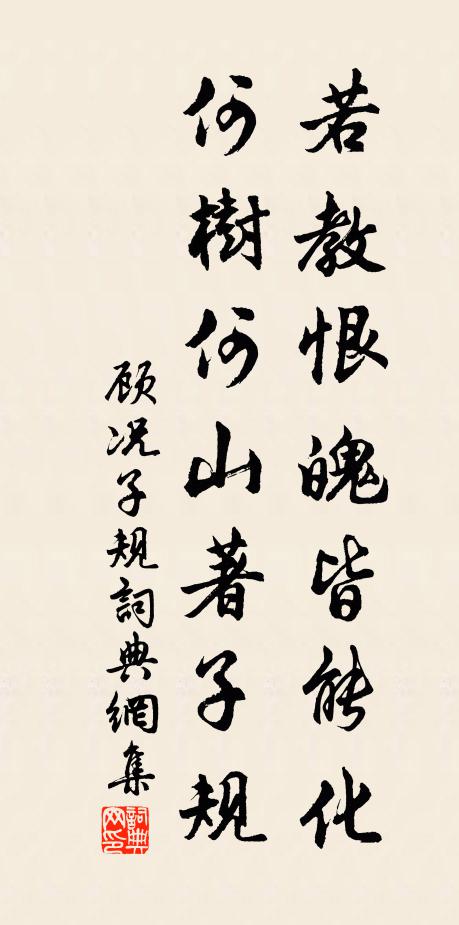 若教恨魄皆能化
何樹何山著子規
顾况子規詞典網集
詞典网印